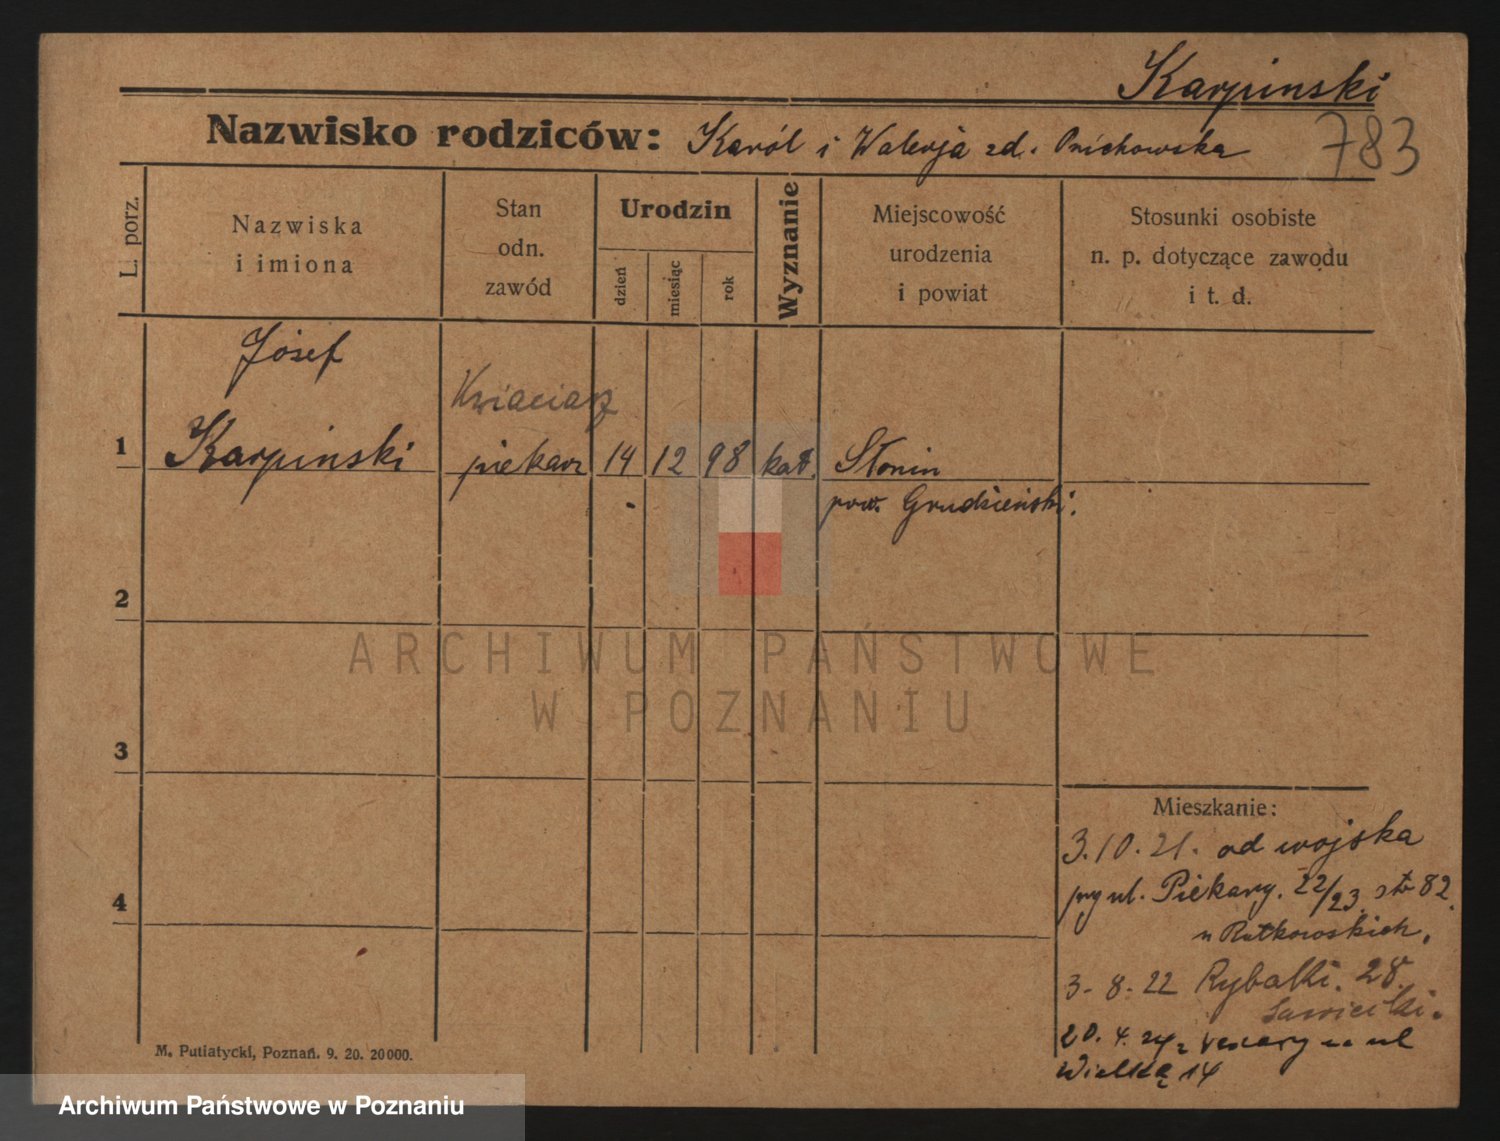 Karpinski
Nazwisko rodziców: Karól i Walerja zd. Prichowska
783
L. porz.
Nazwiska
i imiona
Stan
odn.
zawód
Urodzin
dzień
miesiąc
rok
Wyznanie
Miejscowość
urodzenia
i powiat
Stosunki osobiste
n. p. dotyczące zawodu
i t. d.
Józef
Kwiaciarz
1 Karpinski piekarz 14 12 98 kat. Słonin
pow. Grudzieński.
2
3
4
Mieszkanie:
3.10.21. od wojska
przy ul. Piekary. 22/23 82
u Rutkowskich.
3-8-22 Rybaki. 28.
Sawicki.
20.4.24 z na ul
Wielką 14
M. Putiatycki, Poznań. 9. 20. 20000.
ARCHIWUM PAŃSTWOWE
W POZNANIU
Archiwum Państwowe w Poznaniu